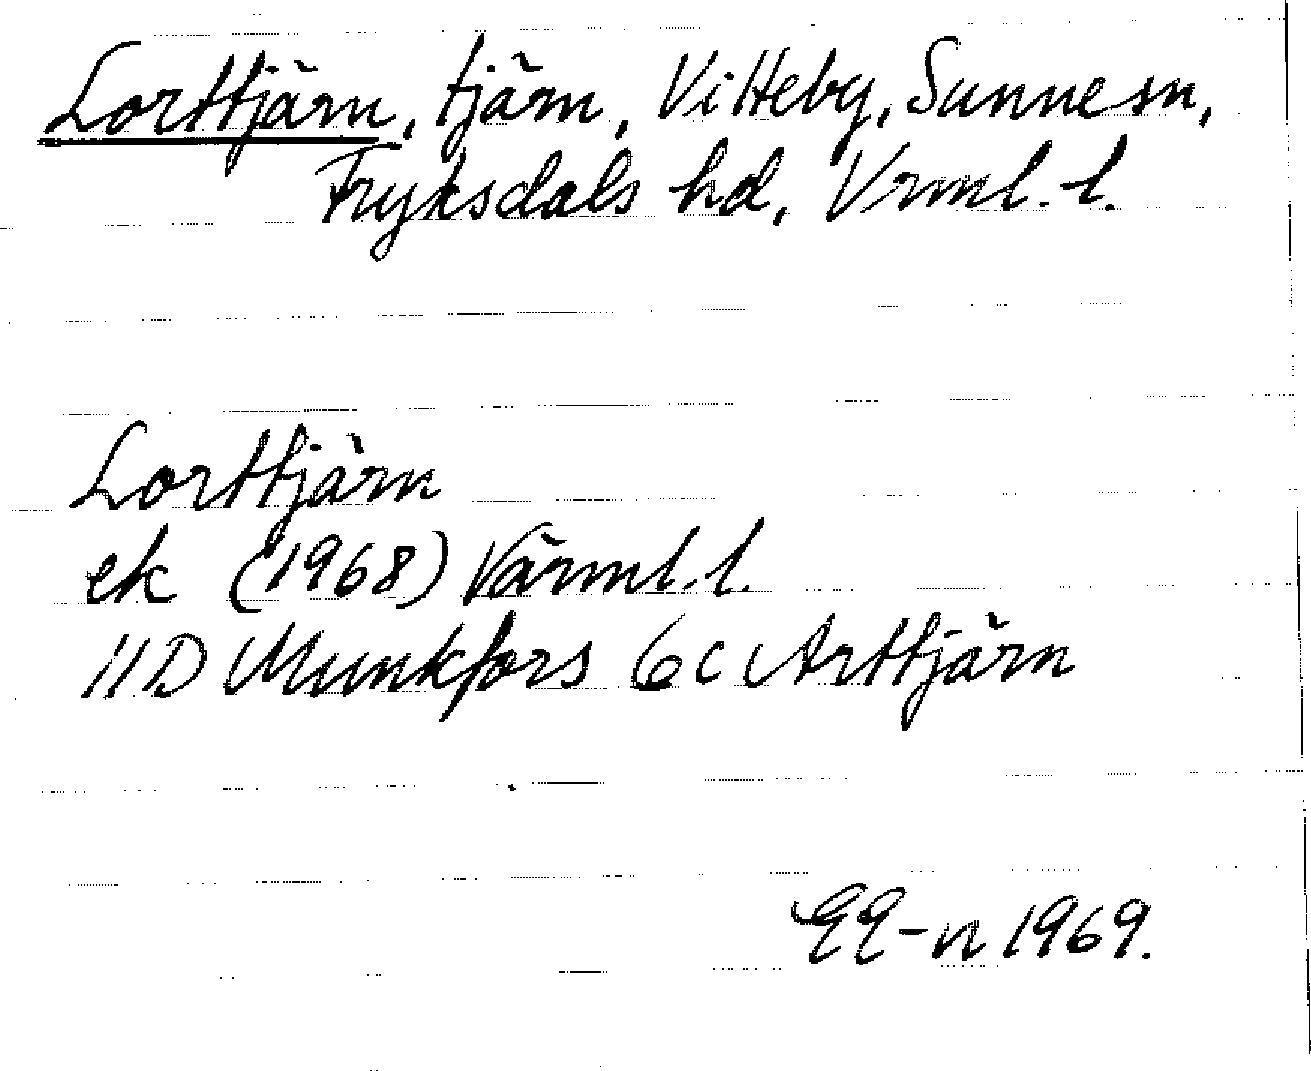 Lorttjärn, tjärn, Vitteby, Sunne sn,
Fryksdals hd, Vrml. l.
Lorttjärn
ek (1968) Värml. l.
11D Munkfors 6c Arttjärn
EE-n 1969.